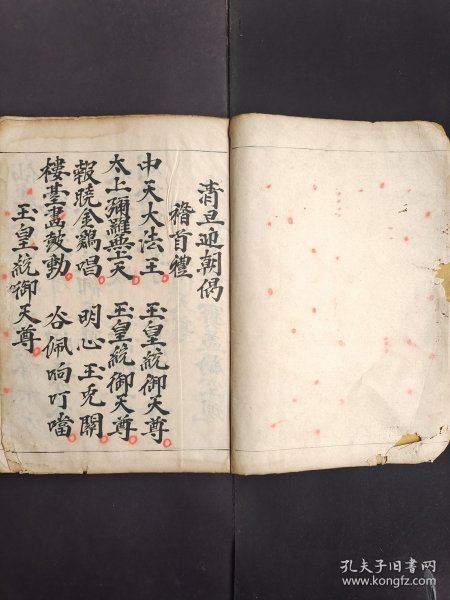 清旦迎朝偈
稽首禮
中天大法王 玉皇統御天尊
太上彌羅無上天 玉皇統御天尊
報曉金鷄唱 明心玉兎關
樓臺畵鼓動 谷佩响叮噹
玉皇統御天尊
孔夫子旧书网
www.kongfz.com